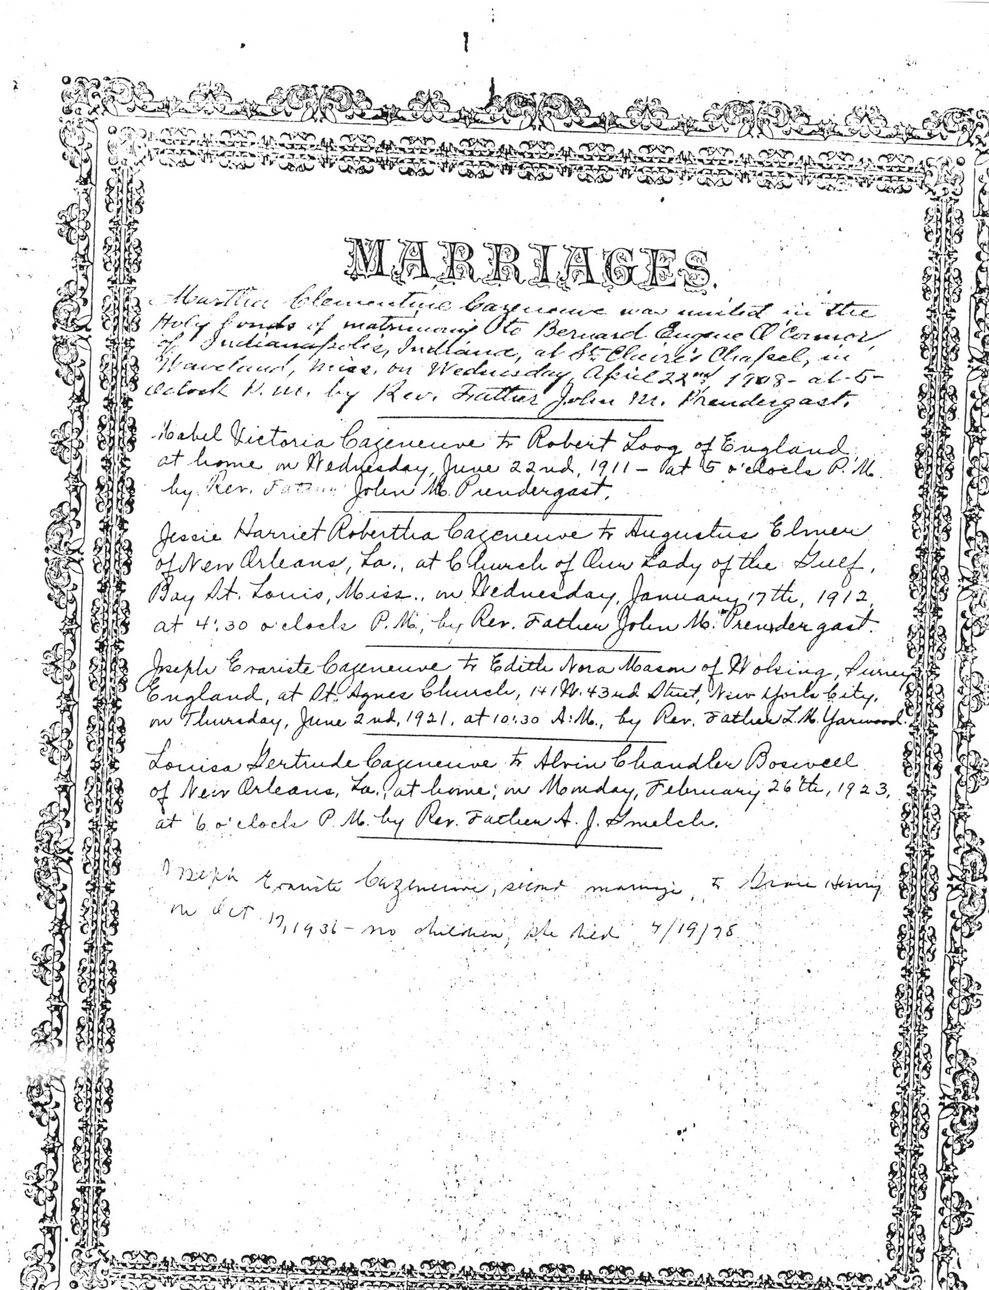 MARRIAGES.
Martha Clementine Cazeneuve was united in the
Holy bonds of matrimony to Bernard Eugene O'Connor,
of Indianapolis, Indiana, at St. Claire's Chapel, in
Waveland, Miss. on Wednesday, April 22nd, 1908 - at - 5 -
oclock P.M. by Rev. Father John M. Prendergast.
Isabel Victoria Cazeneuve to Robert Loog of England,
at home on Wednesday, June 22nd, 1911 - at 5 o'clock P.M.
by Rev. Father John M. Prendergast.
Jessie Harriet Robertha Cazeneuve to Augustus Elmer
of New Orleans, La., at Church of Our Lady of the Gulf,
Bay St. Louis, Miss., on Wednesday, January 17th, 1912,
at 4:30 o'clock P.M., by Rev. Father John M. Prendergast.
Joseph Evariste Cazeneuve to Edith Nora Mason of Wolsing, Surrey
England, at St. Agnes Church, 141 W. 43rd Street, New York City,
on Thursday, June 2nd, 1921, at 10:30 A.M., by Rev. Father L. H. Yarwood.
Louisa Gertrude Cazeneuve to Alvin Chandler Boswell
of New Orleans, La., at home, on Monday, February 26th, 1923,
at 6 o'clock P.M. by Rev. Father A. J. Gmelch.
Joseph Evariste Cazeneuve, second marriage, to Henry
on Oct 17, 1936 - no children, she died 4/19/78